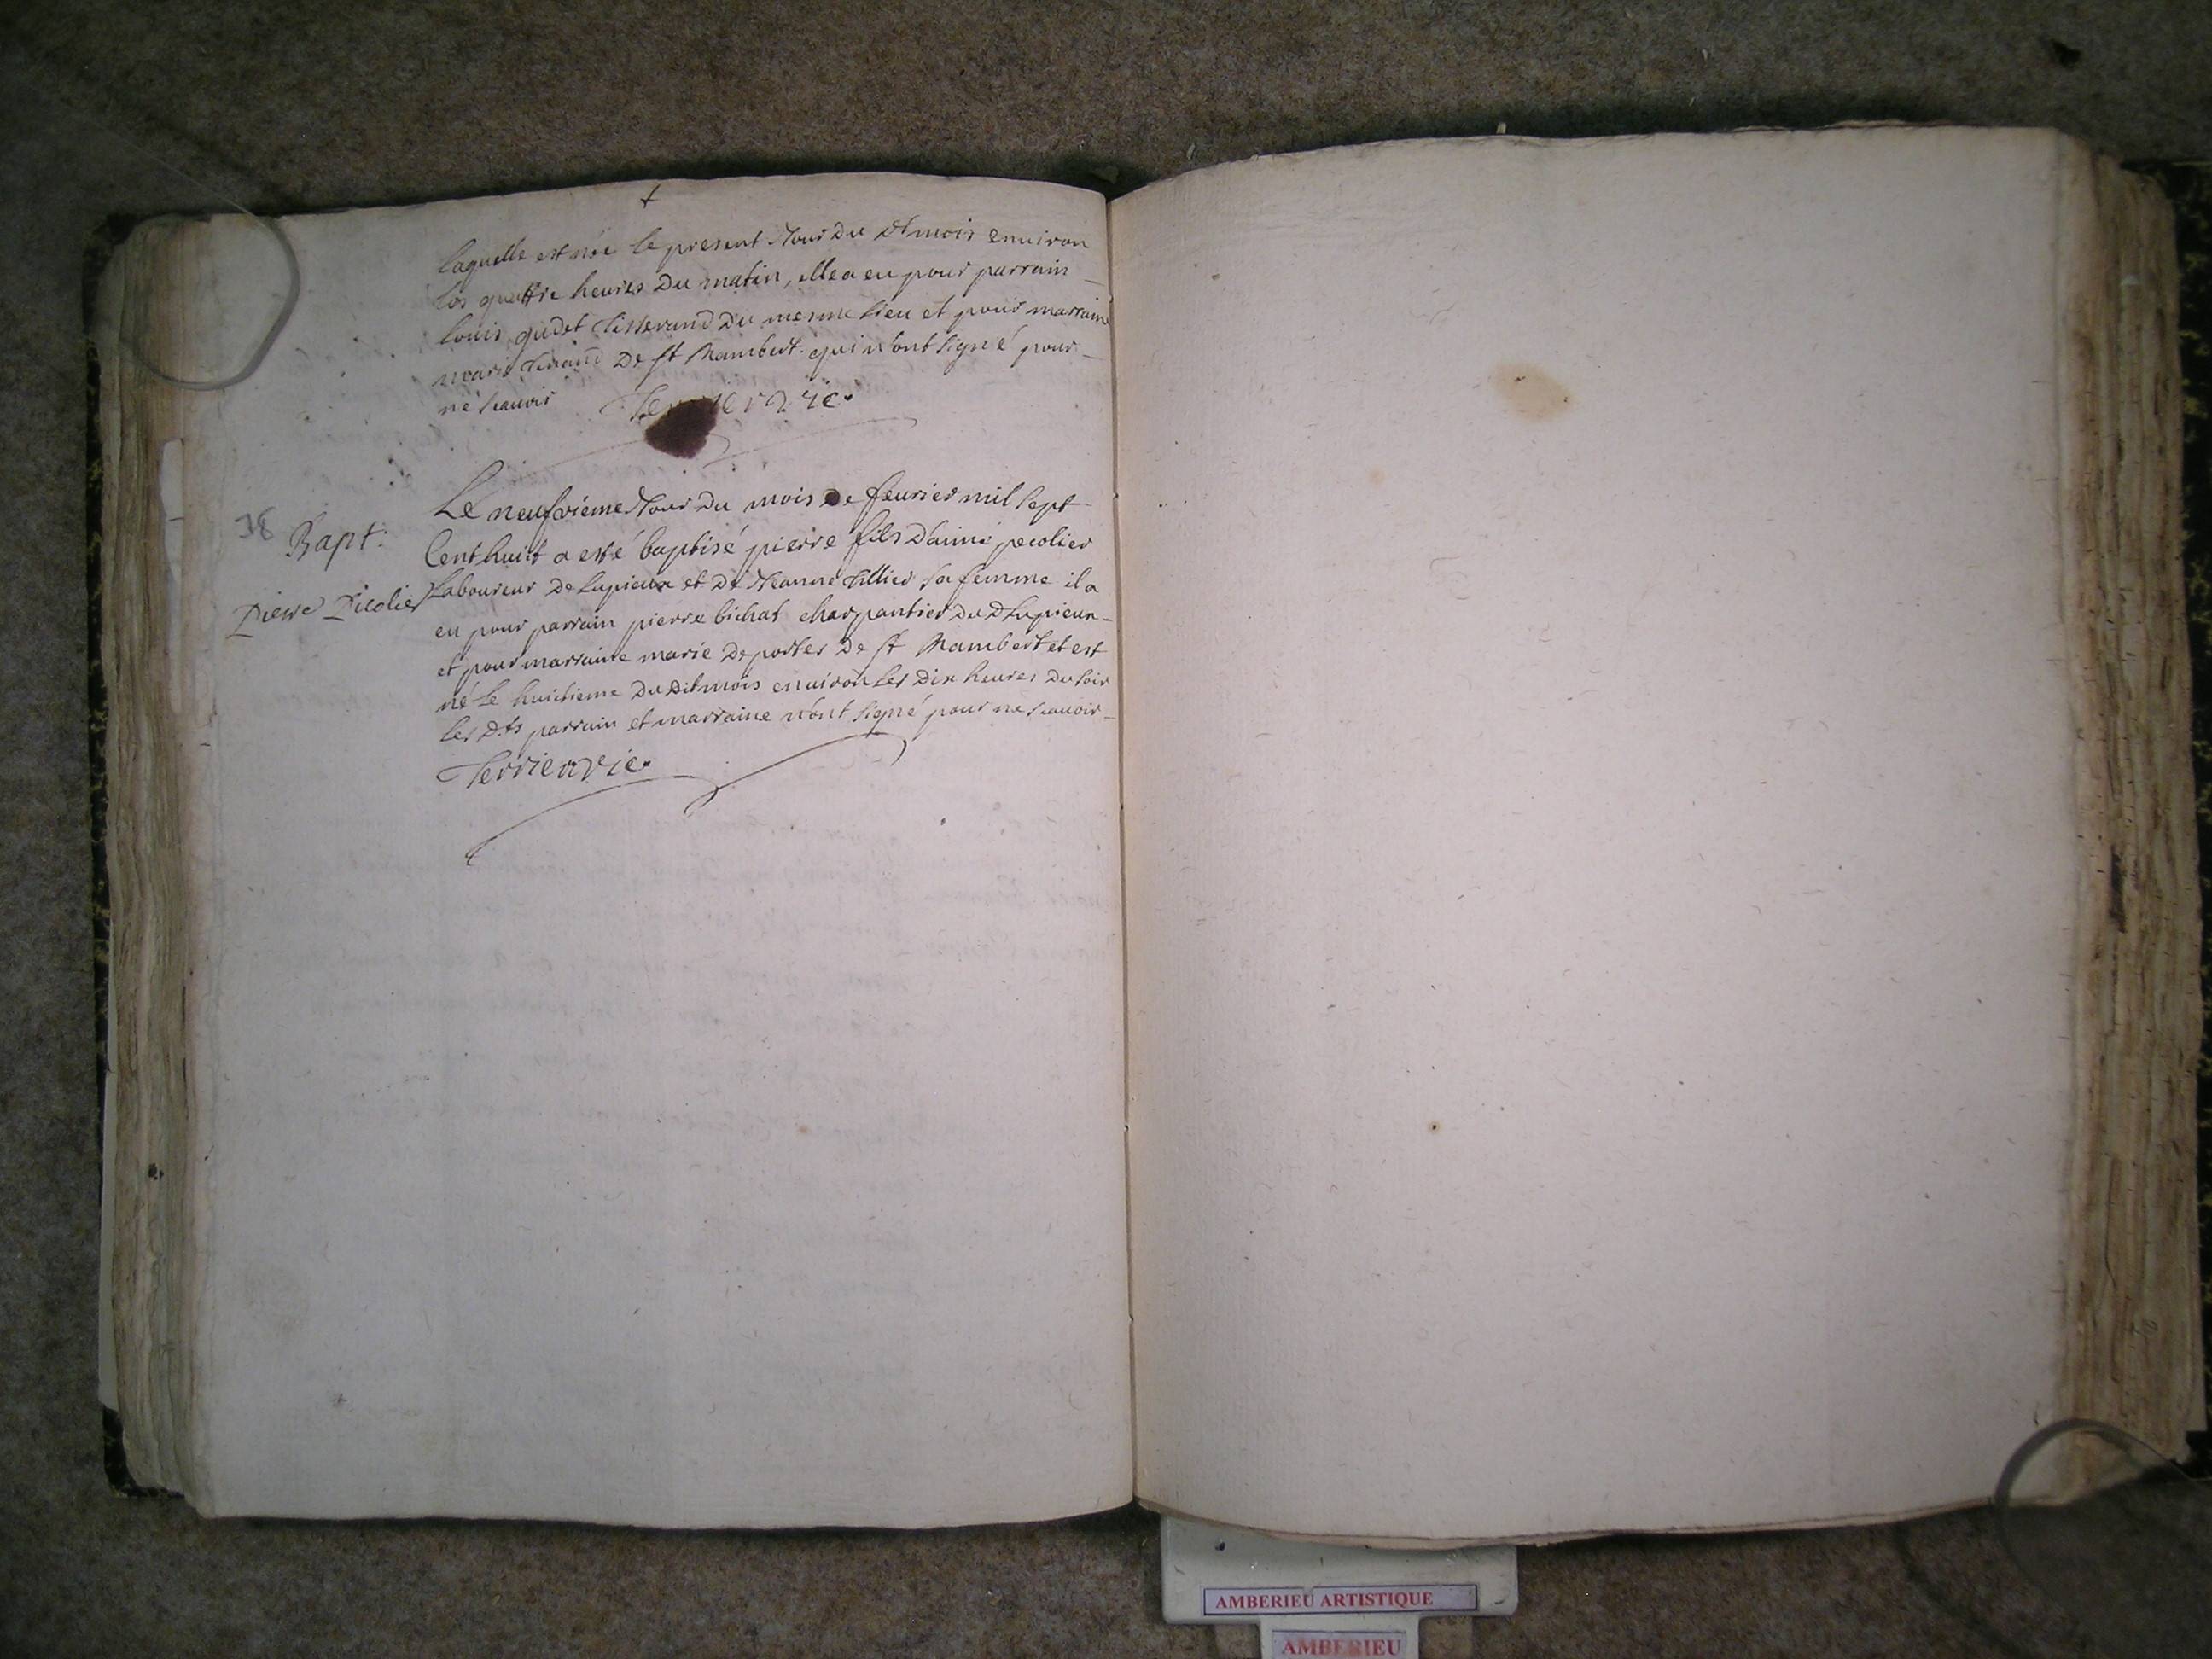 laquelle est née le present Jour Du dt mois environ
les quattre heures Du matin, elle a eu pour parrain
louis gudet tisserand Du mesme lieu et pour marraine
marie De st Rambert qui n'ont signé pour
ne scavoir Terrier vic.
38
Bapt:
Pierre Picolier
Le neufvieme Jour Du mois De feurier mil sept
Cent huit a esté baptisé pierre fils D'aimé pecolier
laboureur De lupieux et De Jeanne tillier sa femme il a
eu pour parrain pierre bichat charpantier Du Dt lupieux
et pour marraine marie Deportes De st Rambert et est
né le huictieme Du Dit mois enuiron les Dix heures Du soir
les D.ts parrain et marraine n'ont signé pour ne scauoir
Terrier vic.
AMBERIEU ARTISTIQUE
AMBERIEU